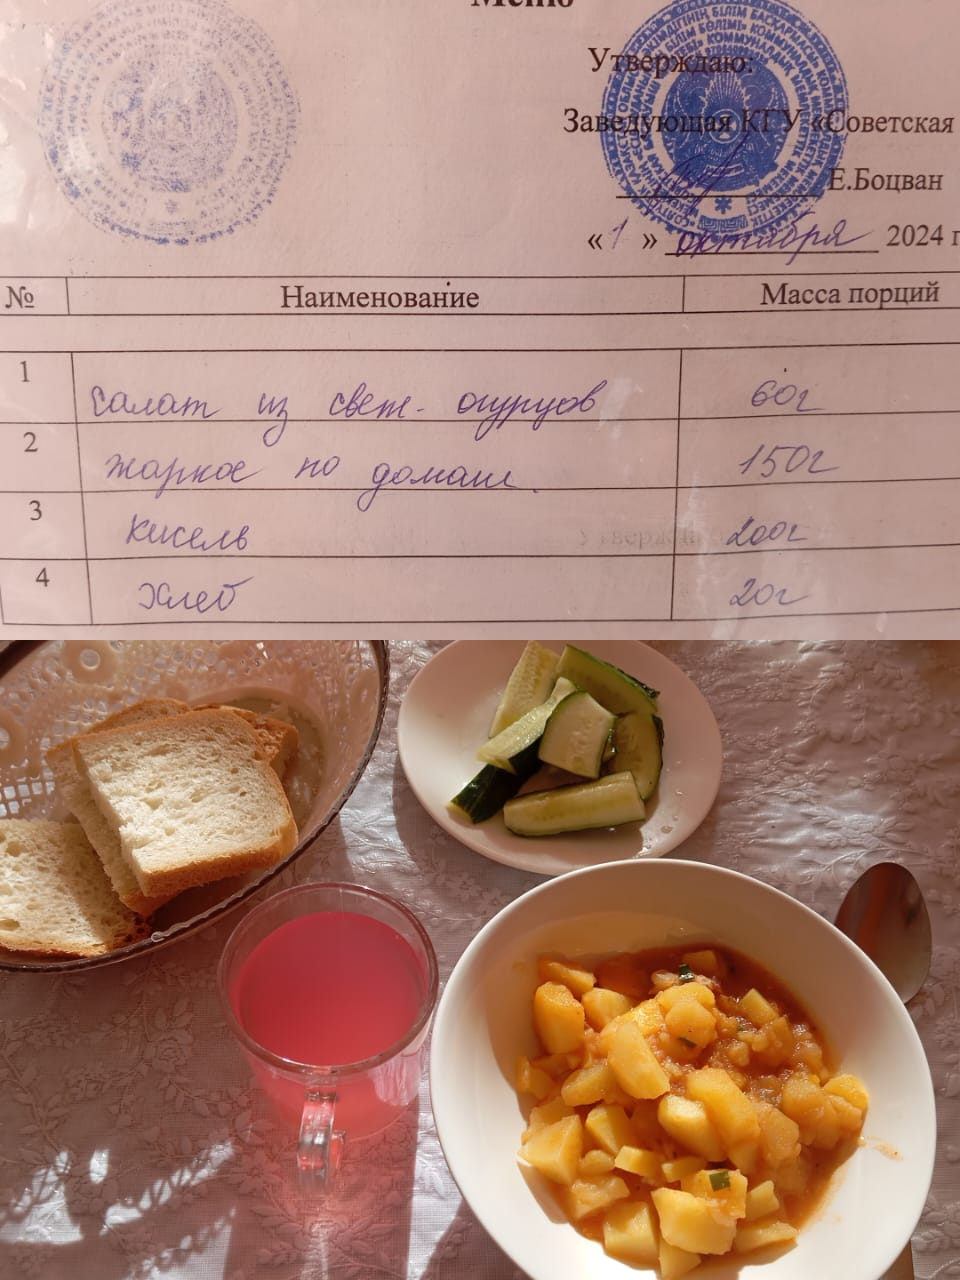 Меню
Утверждаю:
Заведующая КГУ «Советская
Е.Боцван
«1» октября 2024 г
№ Наименование Масса порций
1 салат из свеж. огурцов 60г
2 жаркое по домаш. 150г
3 кисель 200г
4 Хлеб 20г